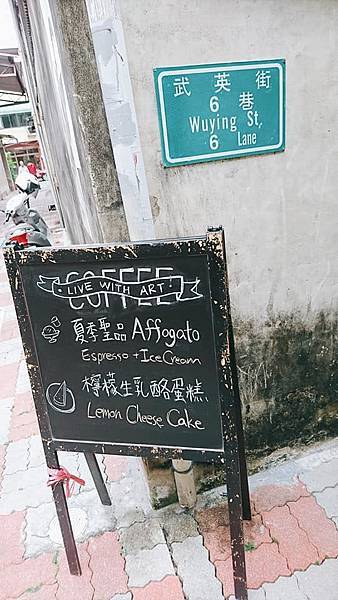 武英街
6巷
Wuying St,
6 Lane
COFFEE
LIVE WITH ART
夏季聖品 Affogato
Espresso + Ice Cream
檸檬生乳酪蛋糕
Lemon Cheese Cake